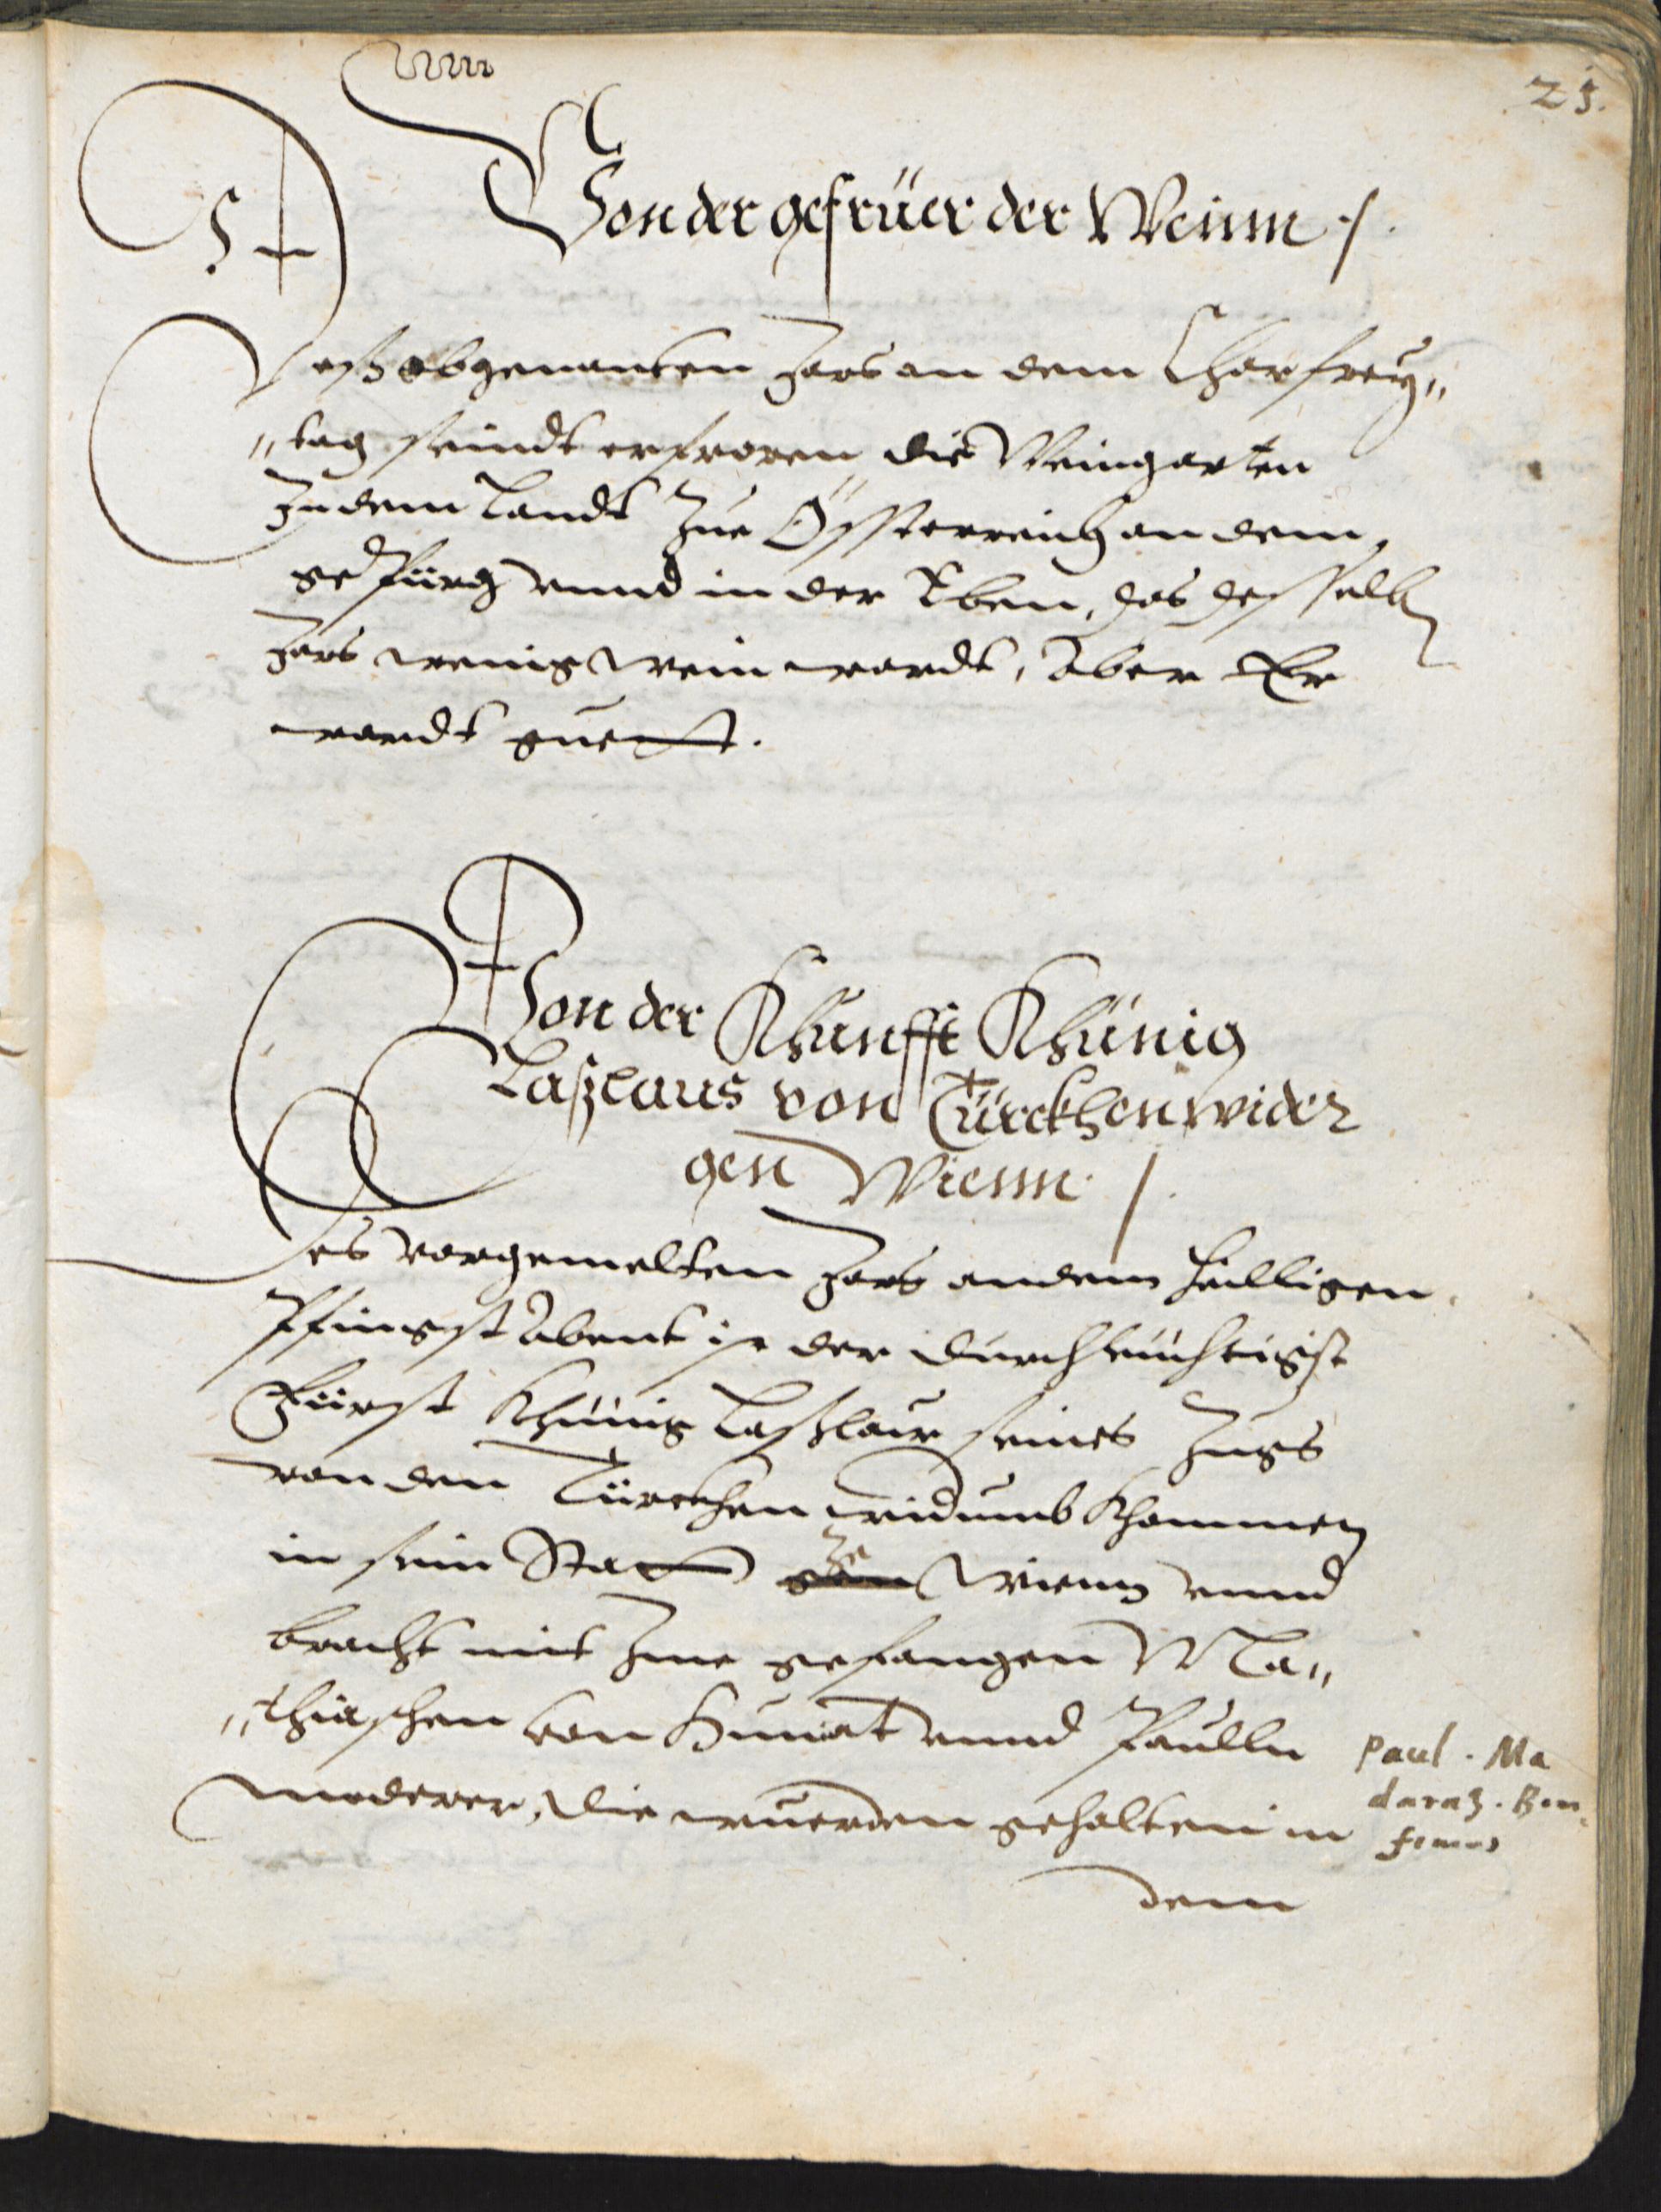 25.
Von der gefrüer der Weinn ./.
Deß obgenanten Jars an dem Charfrey„
„tag seindt erfroren die Weingarten
In dem Landt Zue Össterreich an dem
gepürg vnnd in der Eben, das desselb
Jars wenig wein wardt, Aber Er
wardt guett.
Von der Khunfft Khünig
Laßlaus von Türckhen wider
gen Wienn ./.
Des vorgemelten Jars an dem heilligen
Pfingst Abent ist der durchleuchtigist
Fürst Khünig Laßlaw seines Zugs
von den Türckhen widumb khommen
in sein Statt gen Ze Wienn vnnd
bracht mit Ime gefangen Ma„
„thiaschen von Huniat vnnd Paulln
moderer, die wuerden gehalten in
Paul . Ma
daraz . Bon
finius
dem